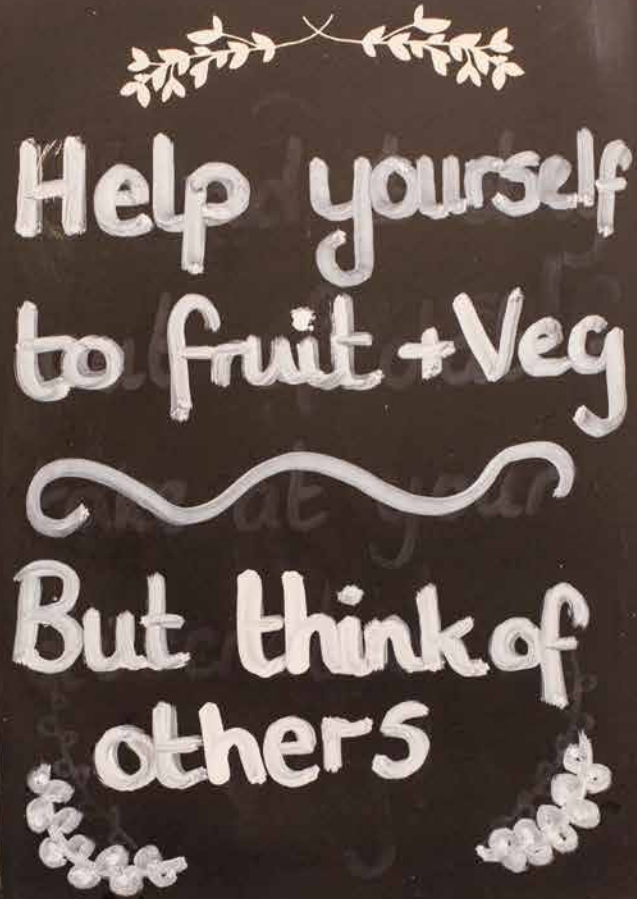 Help yourself
to fruit + Veg
But think of
others